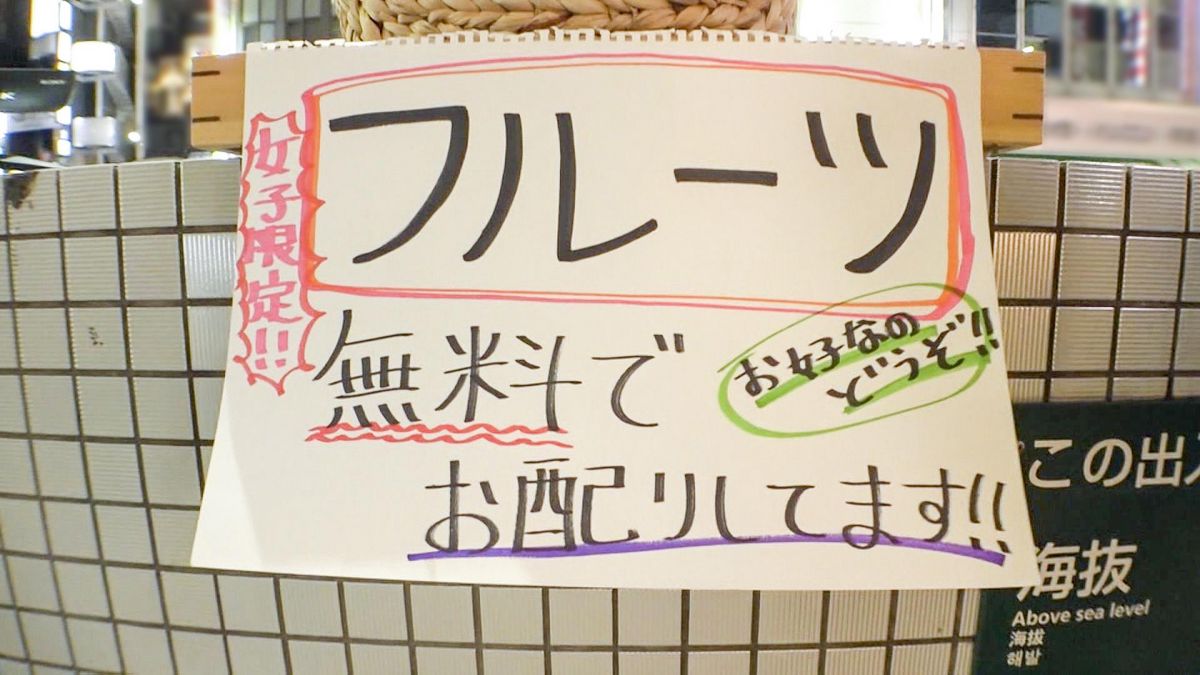 女子限定!!
フルーツ
無料で
お好なの
どうぞ!!
お配りしてます!!
この出入
海抜
Above sea level
海拔
해발